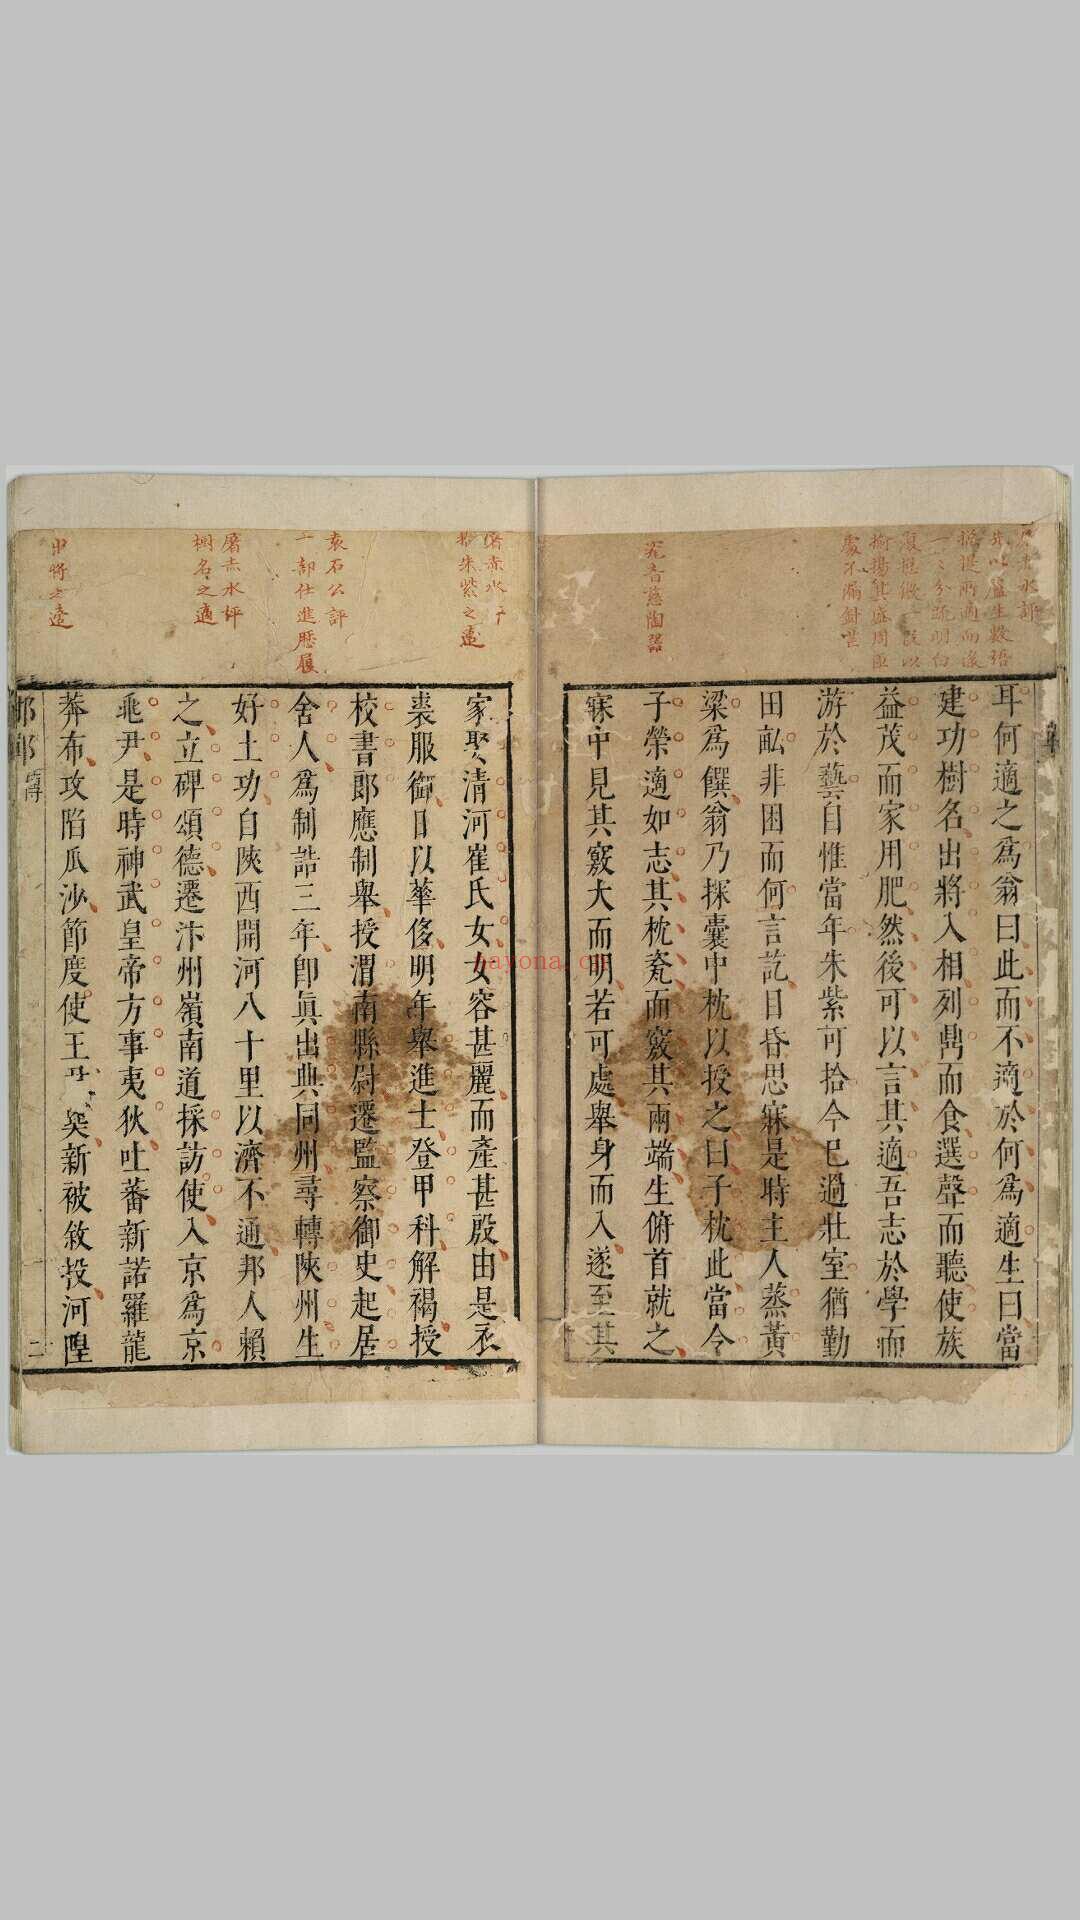 屠赤水評
先以盧生數語
從提兩適而後
一一分疏明白
瓷音慈陶器
耳何適之爲翁曰此而不適於何爲適生曰當
建功樹名出將入相列鼎而食選聲而聽使族
益茂而家用肥然後可以言其適吾志於學而
游於藝自惟當年朱紫可拾今已過壯室猶勤
田畝非困而何言訖目昏思寐是時主人蒸黃
梁爲饌翁乃探囊中枕以授之曰子枕此當令
子榮適如志其枕瓷而竅其兩端生俯首就之
寐中見其竅大而明若可處舉身而入遂至其
屠赤水評
拾朱紫之適
袁石公評
一部仕進歷履
屠赤水評
樹名之適
出將之適
家娶清河崔氏女女容甚麗而產甚殷由是衣
裘服御日以華侈明年舉進士登甲科解褐授
校書郎應制舉授渭南縣尉遷監察御史起居
舍人爲制誥三年卽眞出典同州尋轉陝州生
好土功自陝西開河八十里以濟不通邦人賴
之立碑頌德遷汴州嶺南道採訪使入京爲京
兆尹是時神武皇帝方事夷狄吐蕃新諾羅龍
莽布攻陷瓜沙節度使王 㚟新被敘投河隍
邯鄲傳
二
nayona.cn